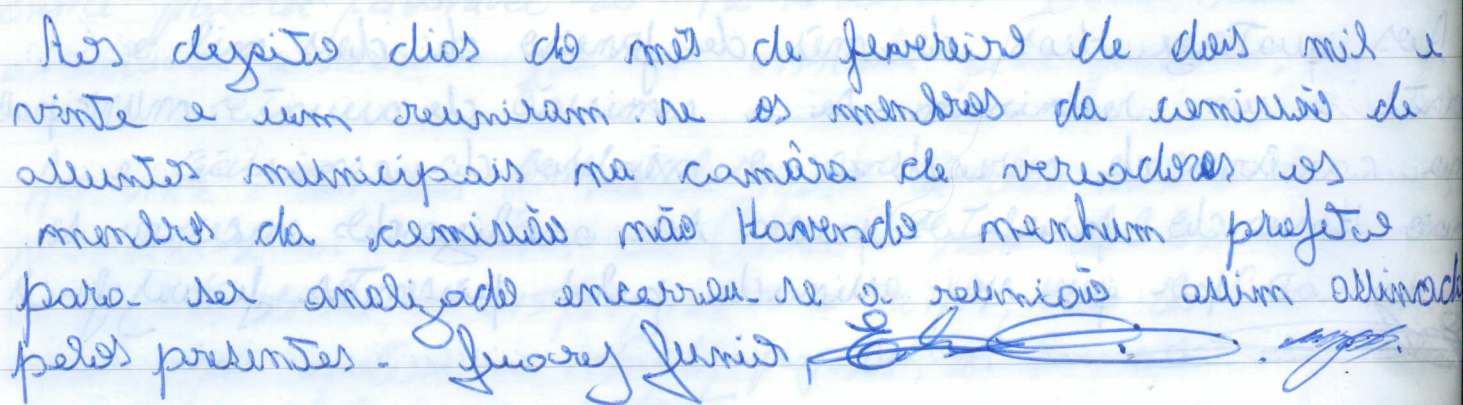 Aos dezoito dias do mês de fevereiro de dois mil e
vinte e um reuniram-se os membros da comissão de
assuntos municipais na camâra de vereadores os
membros da comissão não Havendo nenhum projeto
para ser analizado encerrou-se a reunião assim assinada
pelos presentes. Juarez Junior,